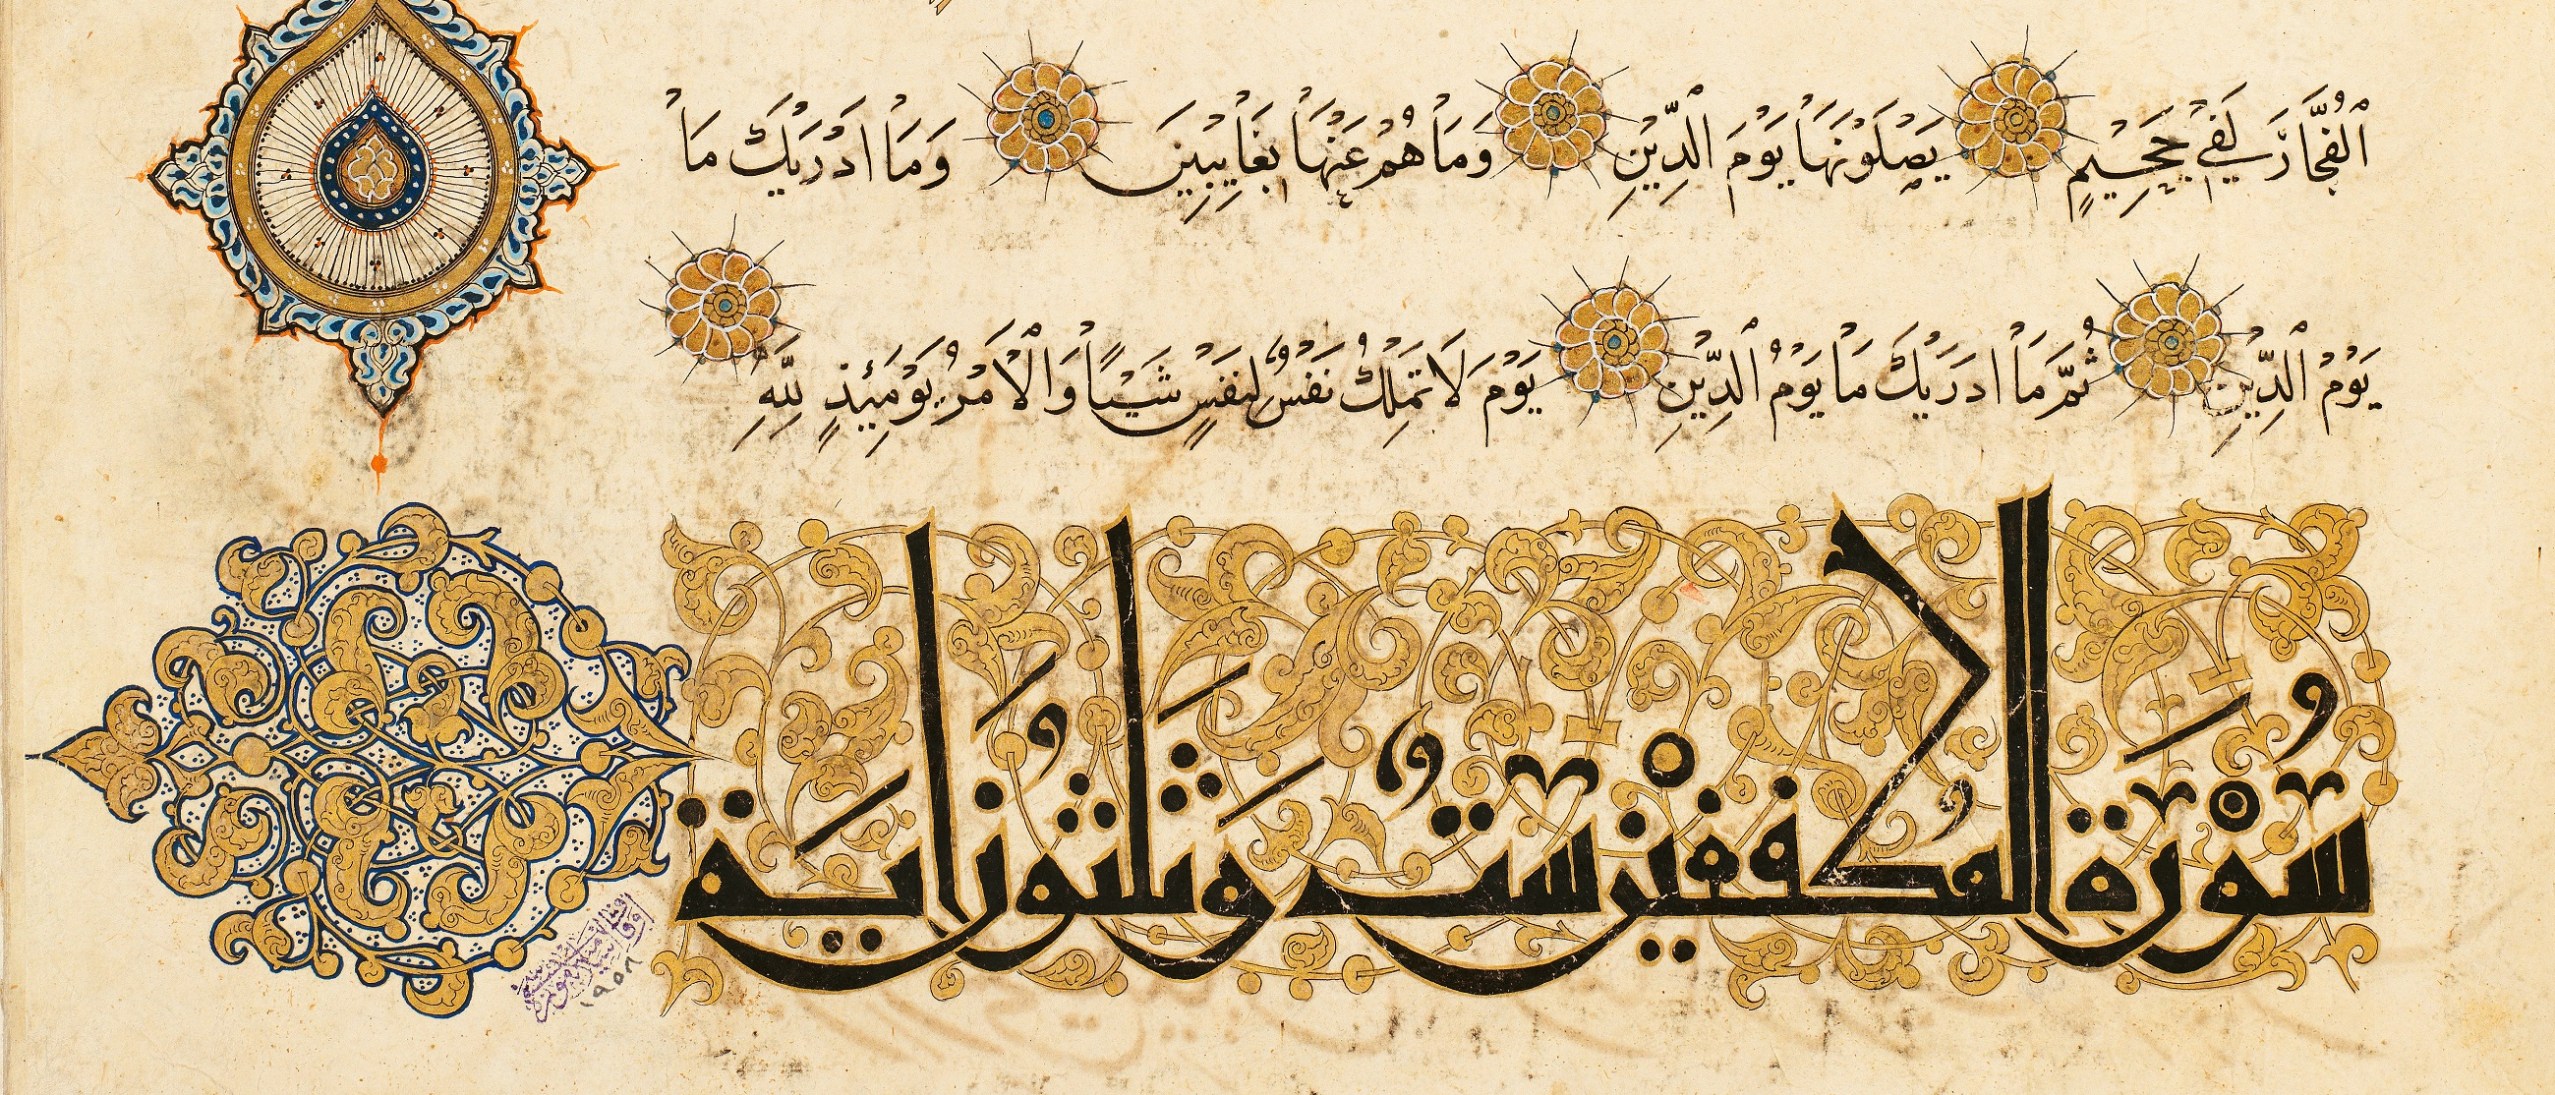 ٱلْفُجَّارَ لَفِي جَحِيمٍ يَصْلَوْنَهَا يَوْمَ ٱلدِّينِ وَمَا هُمْ عَنْهَا بِغَايِبِينَ وَمَا أَدْرَيٰكَ مَا
يَوْمُ ٱلدِّينِ ثُمَّ مَا أَدْرَيٰكَ مَا يَوْمُ ٱلدِّينِ يَوْمَ لَا تَمْلِكُ نَفْسٌ لِنَفْسٍ شَيْـًٔا وَٱلْأَمْرُ يَوْمَئِذٍ لِلَّهِ
سُوْرَة المُطففين ست وَثلثُون ايَة
١٩٥٨